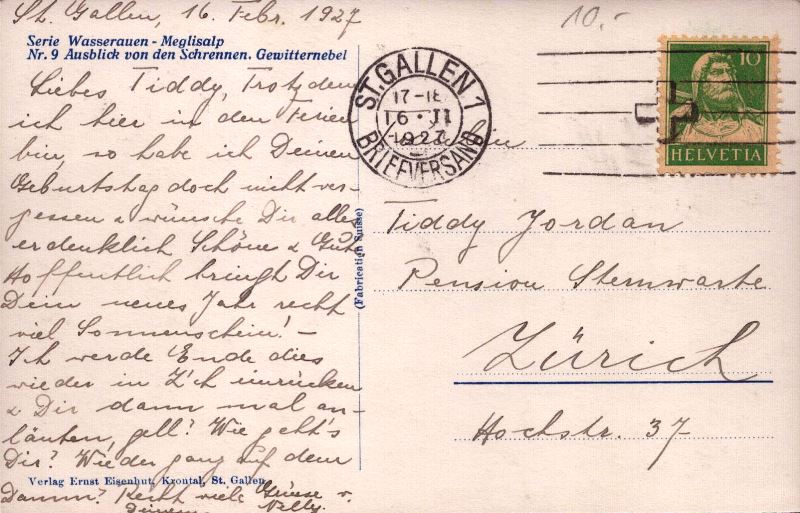 St. Gallen, 16. Febr. 1927
10.-
Serie Wasserauen - Meglisalp
Nr. 9 Ausblick von den Schrennen. Gewitternebel
Liebes Tiddy, Trotzdem
ich hier in den Ferien
bin, so habe ich Deinen
Geburtshag doch nicht ver-
gessen & wünsche Dir alles
erdenklich Schöne & Gute
Hoffentlich bringt Dir
Dein neues Jahr recht
viel Sonnenschein! -
Ich werde Ende dies
wieder in Z'ch einrücken
& Dir dann mal an-
läuten, gell? Wie geht's
Dir? Wieder ganz auf dem
Damm? Recht viele Grüsse v.
Deinem Nelly.
Verlag Ernst Eisenhut, Krontal, St. Gallen
(Fabrication Suisse)
ST. GALLEN 1
17-18
16. II
1927
BRIEFVERSAND
10
HELVETIA
Tiddy Jordan
Pension Sternwarte
Zürich
Hochstr. 37